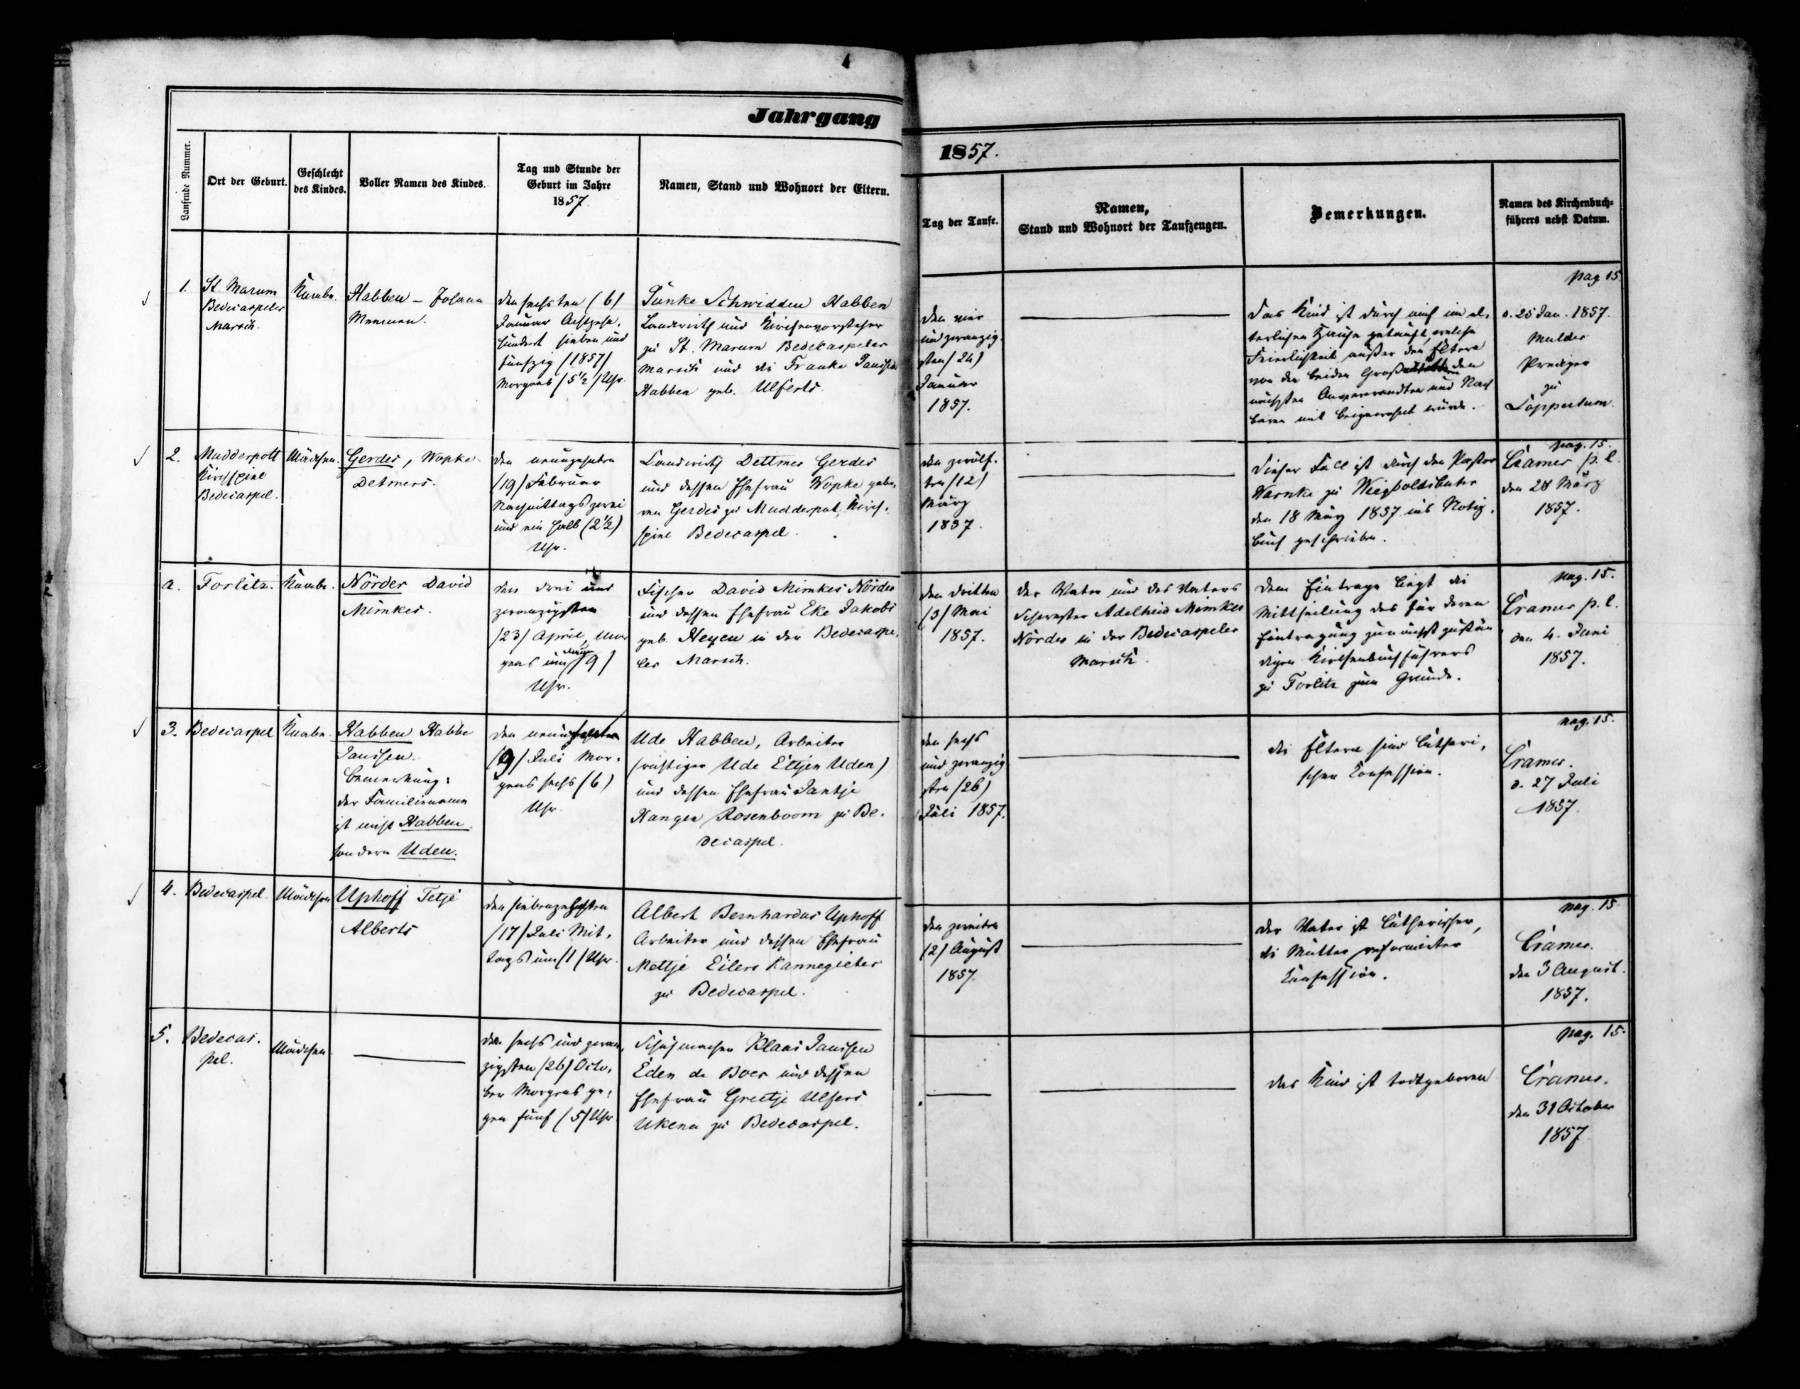 Jahrgang
1857.
Laufende Nummer.
Ort der Geburt.
Geschlecht
des Kindes.
Voller Namen des Kindes.
Tag und Stunde der
Geburt im Jahre
1857
Namen, Stand und Wohnort der Eltern.
Tag der Taufe.
Namen,
Stand und Wohnort der Taufzeugen.
Bemerkungen.
Namen des Kirchenbuch-
führers nebst Datum.
1.
St. Marum
Bedecaspeler
Marsch.
Knabe.
Habben – Johann
Mammen.
den sechsten (6)
Januar Achtzehn,
hundert sieben und
fünfzig (1857)
Morgens (5½) Uhr
Schwidden Habben
Landwirth und Kirchenvorsteher
zu St. Marum Bedekaspeler
Marsch und die Frauke Janssen
Habben geb. Ulferts.
den vier
und zwanzig
sten (24)
Januar
1857.
Das Kind ist durch mich im el,
terlichen Hause getauft, welche
Feierlichkeit außer den Eltern
von den beiden den
nächsten Anverwandten und Nach
baren mit beigewohnt wurde.
pag 15
d. 25 Jan. 1857.
Mulder
Prediger
zu
Loppersum.
2.
Mudderpott
Kirchspiel
Bedecaspel.
Mädchen.
Gerdes, Wopke
Detmers.
den neunzehnten
(19) Februar
Nachmittags zwei
und ein halb (2½)
Uhr.
Landwirth Dettmer Gerdes
und dessen Ehefrau Wopke gebo,
ren Gerdes zu Mudderpot, Kirch,
spiel Bedecaspel.
den zwölf,
ten (12)
März
1857.
Dieser Fall ist durch den Pastor
Warnke zu Wiegboldsbuhr
den 18 März 1857 ins Notiz,
buch geschrieben.
pag. 15.
Cramer p. l.
den 28 März
1857.
a.
Forlitz.
Knabe.
Nörder David
Mimkes.
den drei und
zwanzigsten
(23) April, Mor
gens um neun (9)
Uhr.
Fischer David Mimkes Nörder
und dessen Ehefrau Eke Jakobs
geb. Heyen in der Bedecaspe,
ler Marsch.
den dritten
(3) Mai
1857.
der Vater und des Vaters
Schwester Adelheid Mimkes
Nörder in der Bedecaspeler
Marsch.
Dem Eintrage liegt die
Mittheilung des für deren
Eintragung zunächst zustän
digen Kirchenbuchführers
zu Forlitz zum Grunde.
pag. 15.
Cramer p. l.
den 4. Juni
1857.
3.
Bedecaspel
Knabe.
Habben Habbe
Janssen.
Bemerkung:
der Familienname
ist nicht Habben.
sondern Uden.
den neunten
(9) Juli Mor,
gens sechs (6)
Uhr.
Ude Habben, Arbeiter
(richtiger Ude Eltjen Uden)
und dessen Ehefrau Jantje
Hangen Rosenboom zu Be,
decaspel.
den sechs
und zwanzig
sten (26)
Juli 1857.
die Eltern sind lutheri,
schen Confession.
pag. 15.
Cramer.
d. 27 Juli
1857.
4.
Bedecaspel.
Mädchen
Uphoff Tetje
Alberts
den siebenzehnten
(17) Juli Mit,
tags um (1) Uhr.
Albert Bernhardus Uphoff
Arbeiter und dessen Ehefrau
Mettje Eilers Kannegieter
zu Bedecaspel.
den zweiten
(2) August
1857.
der Vater ist lutherischer,
die Mutter reformirter
Confession.
pag. 15
Cramer.
den 3 August.
1857.
5.
Bedecas,
pel.
Mädchen
den sechs und zwan,
zigsten (26) Octo,
ber Morgens ge,
gen fünf (5) Uhr
Schuhmacher Klaas Janssen
Eden de Boer und dessen
Ehefrau Greetje Ulfers
Ukena zu Bedecaspel.
das Kind ist todtgeboren
pag. 15.
Cramer.
den 31 October
1857